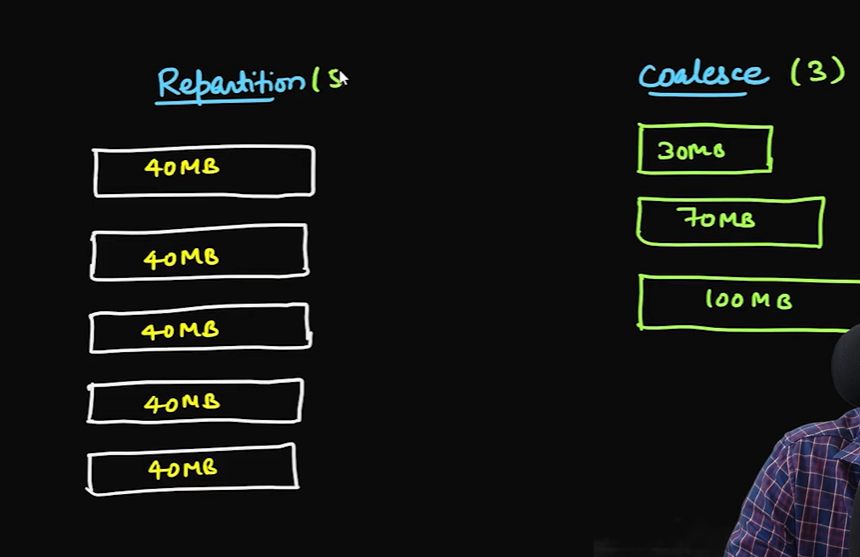 Repartition (5
40MB
40MB
40MB
40MB
40MB
Coalesce (3)
30MB
70MB
100MB